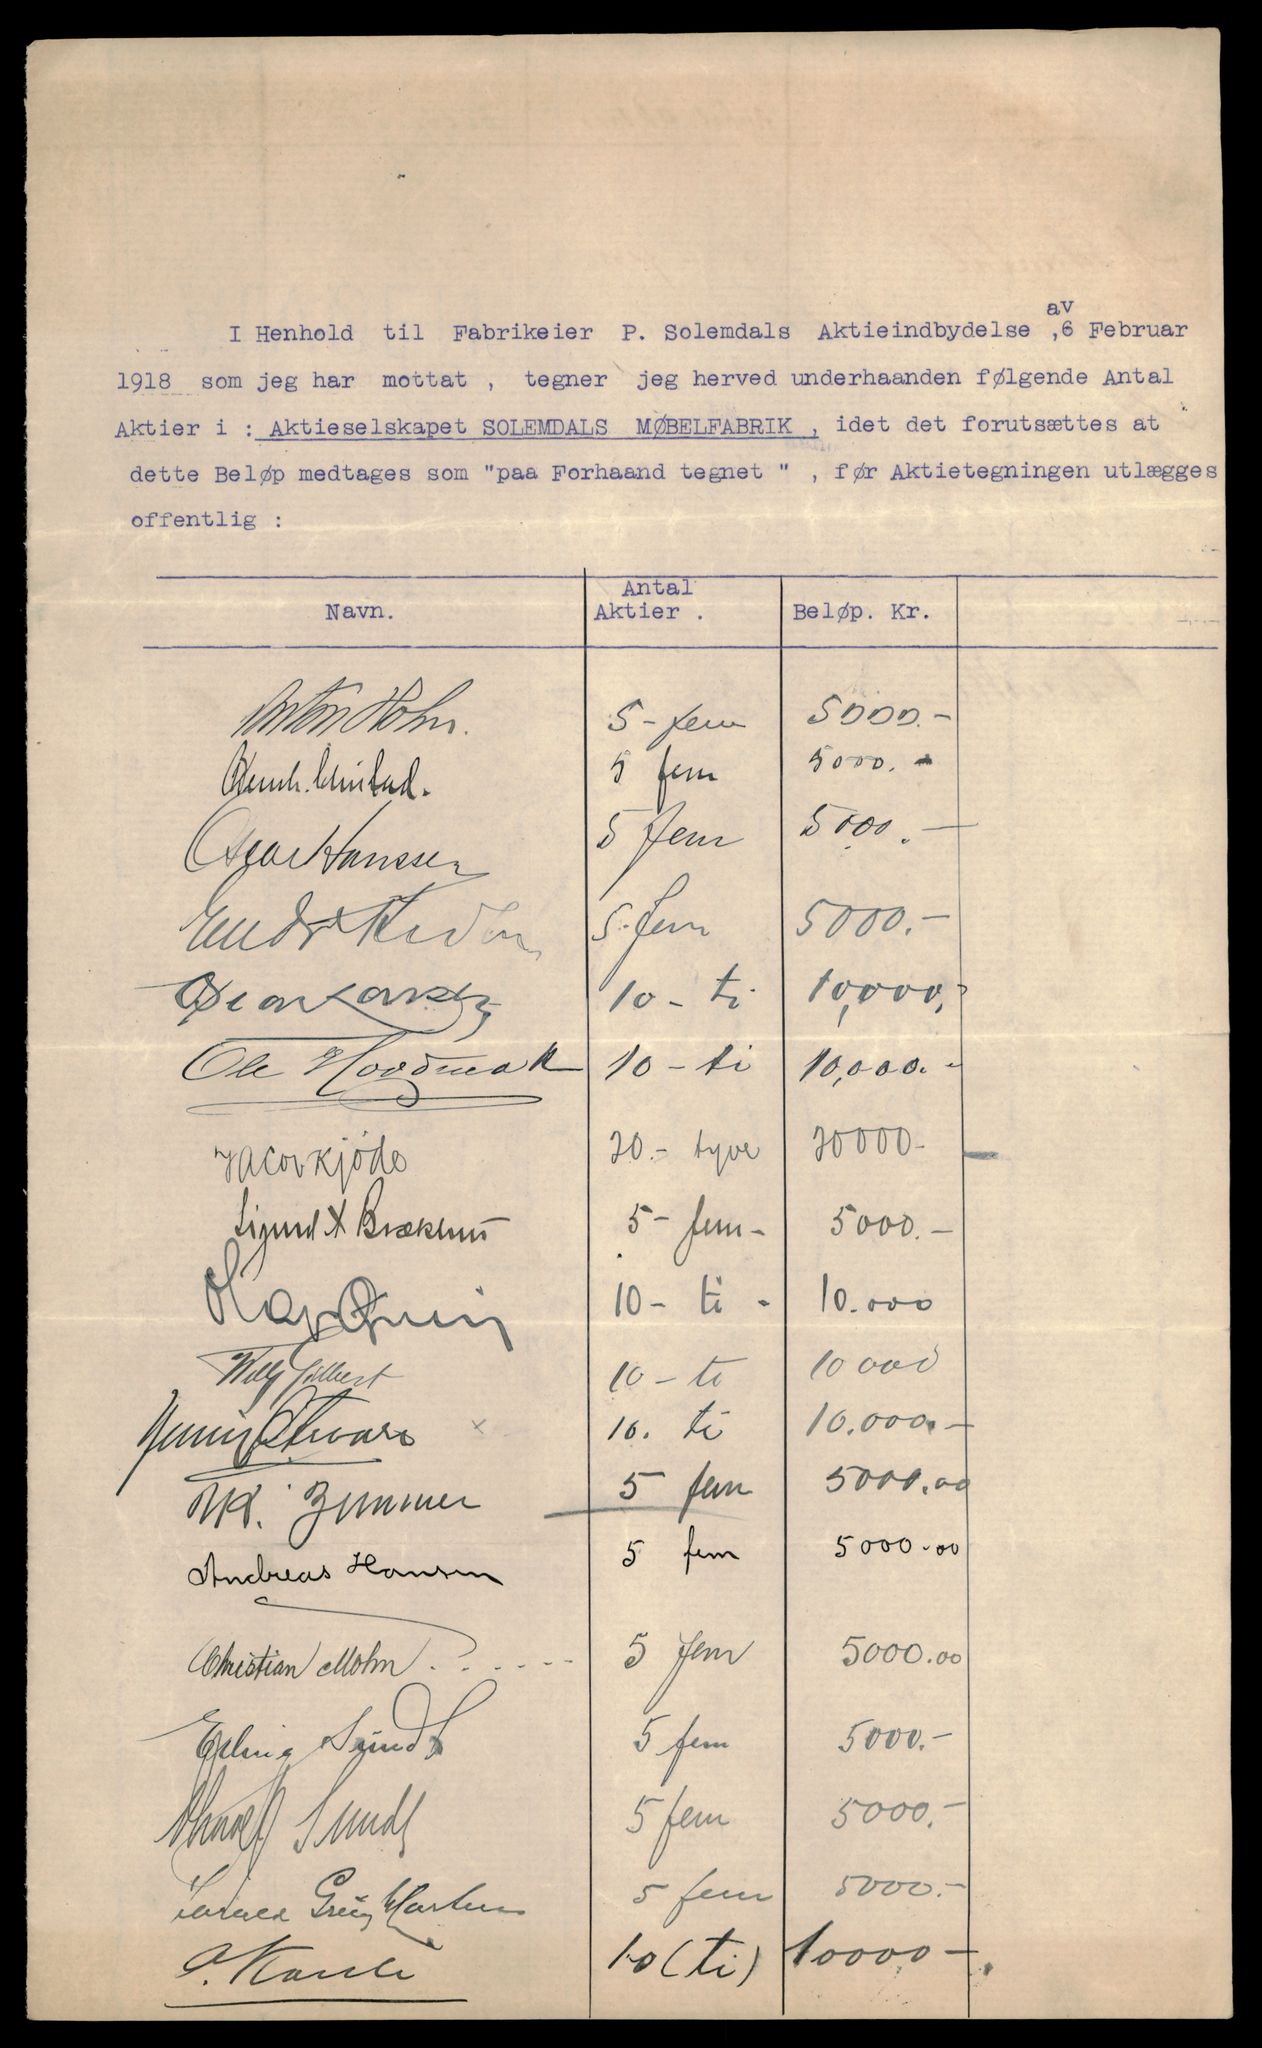 I Henhold til Fabrikeier P. Solemdals Aktieindbydelse av ,6 Februar
1918 som jeg har mottat , tegner jeg herved underhaanden følgende Antal
Aktier i : Aktieselskapet SOLEMDALS MØBELFABRIK , idet det forutsættes at
dette Beløp medtages som "paa Forhaand tegnet " , før Aktietegningen utlægges
offentlig :
Navn. Antal Aktier . Beløp. Kr.
Anton Mohn. 5 - fem 5000.-
5 fem 5000.-
Oscar Hanssen 5 fem 5000.-
5. fem 5000.-
10 - ti 10,000,-
Ole 10 - ti 10,000.-
Jacob Kjøde 20.- tyve 20000-
Sigurd Brækhus 5 - fem - 5000.-
10 - ti - 10.000
Willy Gilbert 10 - ti 10000
10. ti 10.000.-
Zimmer 5 fem 5000.00
Andreas Hansen 5 fem 5000.00
Christian Mohn . . . . . . . 5 fem 5000.00
Erling Sundt 5 fem 5000.-
Sundt 5 fem 5000.-
Grieg Martens 5 fem 5000.-
10 (ti) 10000-.